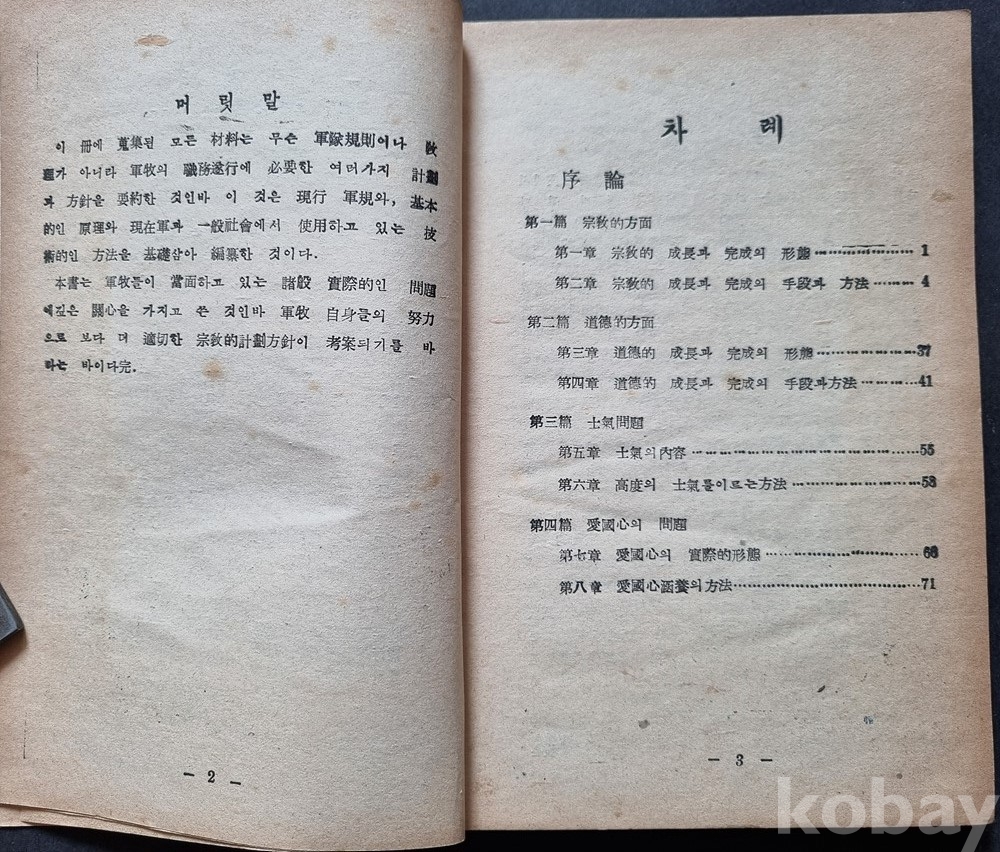 머 릿 말
이 冊에 蒐集된 모든 材料는 무슨 軍隊規則이나 敎
理가 아니라 軍牧의 職務遂行에 必要한 여러가지 計劃
과 方針을 要約한 것인바 이 것은 現行 軍規와, 基本
的인 原理와 現在軍과 一般社會에서 使用하고 있는 技
術的인 方法을 基礎삼아 編纂한 것이다.
本書는 軍牧들이 當面하고 있는 諸般 實際的인 問題
에깊은 關心을 가지고 쓴 것인바 軍牧 自身들의 努力
으로 보다 더 適切한 宗敎的計劃方針이 考案되기를 바
라는 바이다完.
— 2 —
차 레
序 論
第一篇 宗敎的方面
第一章 宗敎的 成長과 完成의 形態………………1
第二章 宗敎的 成長과 完成의 手段과 方法………4
第二篇 道德的方面
第三章 道德的 成長과 完成의 形態………………37
第四章 道德的 成長과 完成의 手段과方法………41
第三篇 士氣問題
第五章 士氣의內容………………………………55
第六章 高度의 士氣를이르는方法………………58
第四篇 愛國心의 問題
第七章 愛國心의 實際的形態……………………66
第八章 愛國心涵養의方法………………………71
— 3 —
kobay